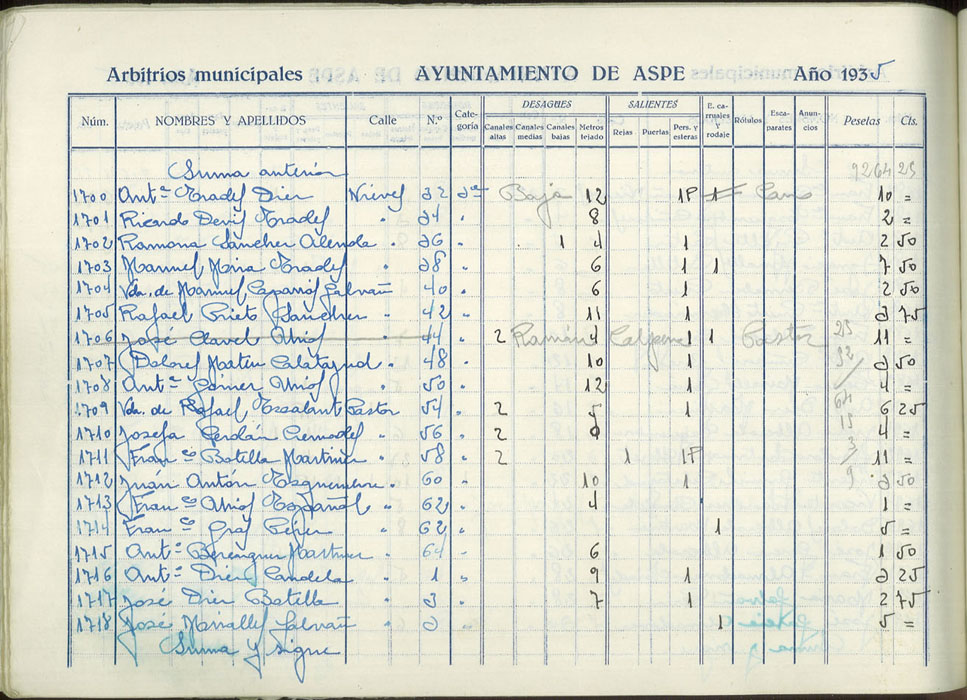 Arbitrios municipales AYUNTAMIENTO DE ASPE Año 1935
Núm. NOMBRES Y APELLIDOS Calle N.º Categoría DESAGUES Canales altas Canales medias Canales bajas Metros tejado SALIENTES Rejas Puertas Pers. y esteras E. carruales y rodaje Rótulos Escaparates Anuncios Pesetas Cts.
Suma anterior 9264 25
1700 Ant.ª Prades Dier Nieves 22 2ª Baja 12 1P 1 Cano 10 =
1701 Ricardo Devis Prades " 24 " 8 2 =
1702 Ramona Sánchez Alenda " 26 " 1 4 1 2 50
1703 Manuel Mira Prades " 28 " 6 1 1 7 50
1704 Vda. de Manuel Caparrós Galvañ " 40 " 6 1 2 50
1705 Rafael Prieto Sánchez " 42 " 11 1 3 75
1706 José Clavel " 44 " 2 Ramón 4 Calpena 1 1 Pastor 25 11 =
1707 Dolores Martín Calatayud " 48 " 10 1 3 50
1708 Ant.ª Gómez " 50 " 12 1 4 =
1709 Vda. de Rafael Pastor 54 " 2 5 1 6 25
1710 Josefa Cerdán Cremades " 56 " 2 4 =
1711 Fran.co Botella Martínez " 58 " 2 1 1P 11 =
1712 Juán Antón " 60 " 10 1 3 50
1713 Fran.co " 62 " 4 1 =
1714 Fran.co Gras Pérez " 62 " 1 5 =
1715 Ant.º Berenguer Martínez " 64 " 6 1 50
1716 Ant.º Diez Candela " 1 " 9 1 3 25
1717 José Diez Botella " 3 " 7 1 2 75
1718 José Miralles Galvañ " 2 " 1 5 =
Suma y sigue